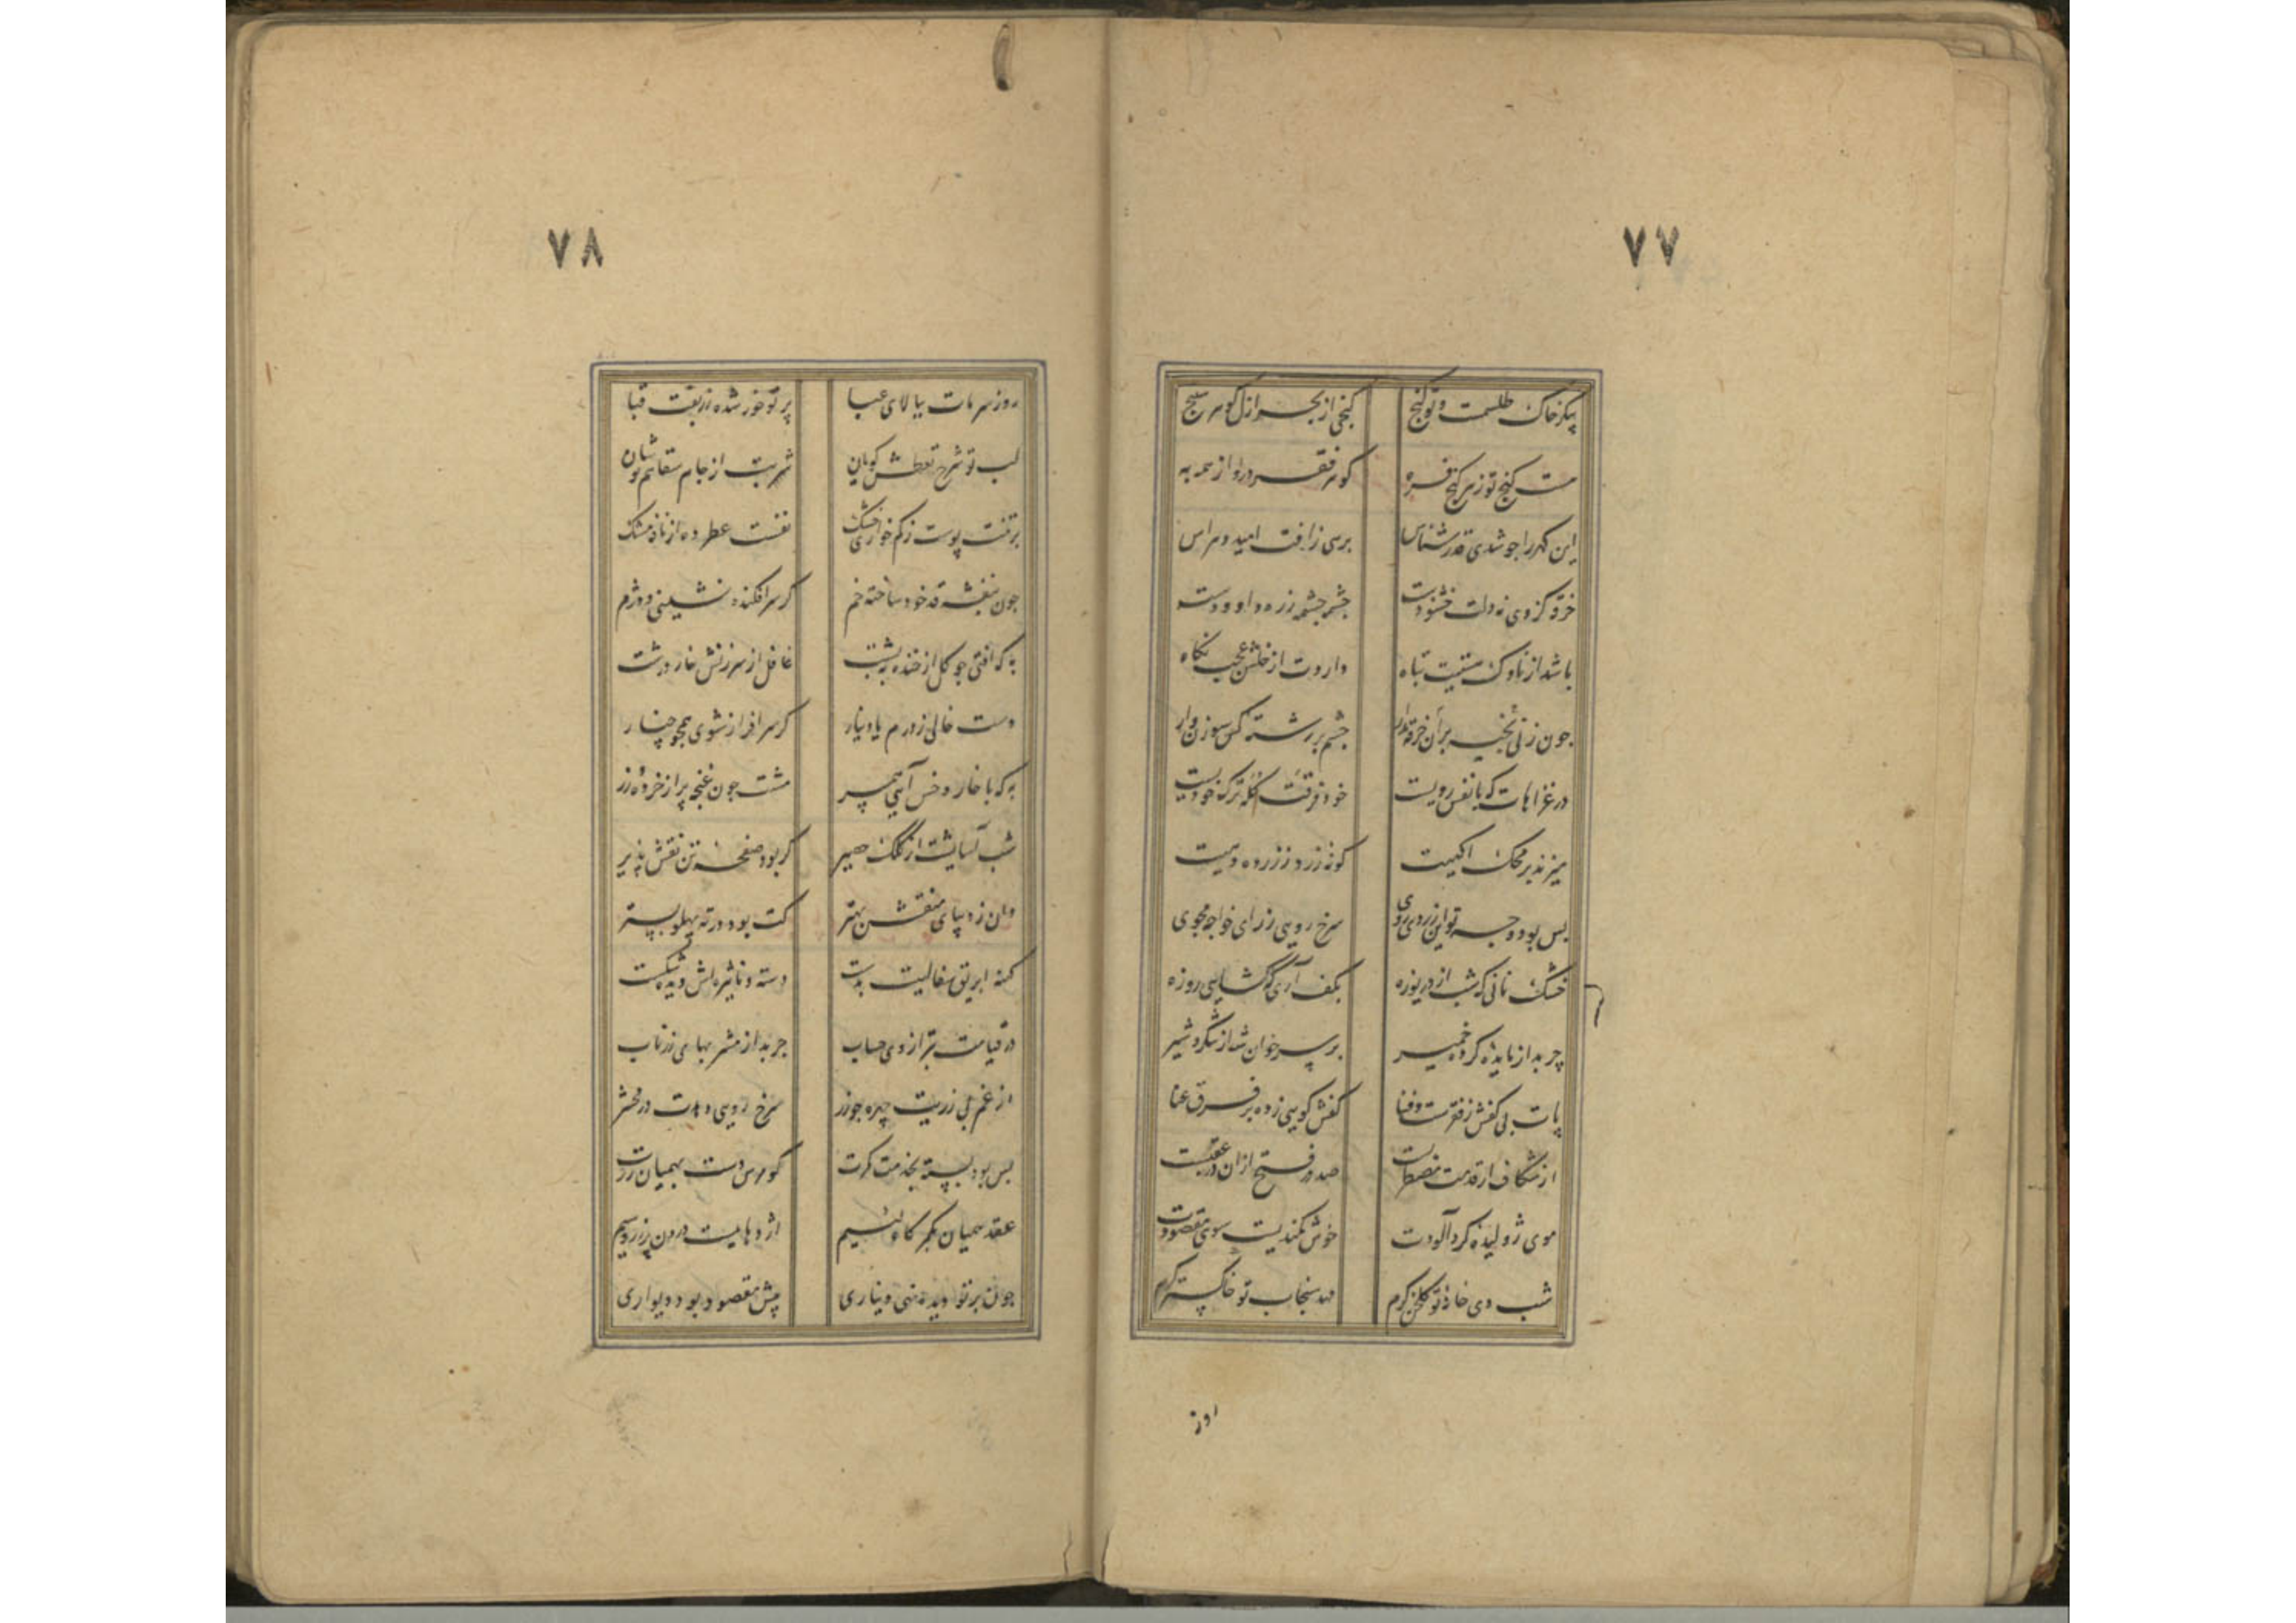 ۷۷
پیکر خاک طلسمت و تو کنج کنجی از بحر ازل کوهر سنج
هست کنج تو ز هر کنج فره کوهر فقر درو از همه به
این کهر را جو شدی قدر شناس برهی ز افت امید و هراس
خرقه کز وی نه دلت خشنودست چشم چشمه زره داوودست
باشد از ناوک مشتیت تباه داردت از خلش عجب نکاه
جون زنی بخیه بر آن خرقه مدار چشم بر رشته کس سوزن وار
در غزاهات که با نفس رویست خود فرقت کله ترک خودیست
میزند بر محک اکهیت کونه زرد زر ده دهیت
بس بود وجه تو این زردی روی سرخ رویی ز زر ای خواجه مجوی
خشک نانی که شب از دریوزه بکف آری که کشایی روزه
چربد از مایده کرده خمیر بر سر خوان شه از شکر و شیر
پات بی کفش ز فقرست و فنا کفش کوبی زده بر فرق غنا
از شکاف ار قدمت مضطربست صد در فتح ازان در عقبست
موی ژولیده کرد آلودت خوش کمندیست سوی مقصودت
شب دی خانه تو کلخن کرم مهد سنجاب تو خاکستر کرم
۷۸
روز سرمات ببالای عبا پرتو خور شده زربفت قبا
لب تو شرح تعطش کویان شربت از جام سقاهم
بر تنت پوست ز کم خواری خشک نفست عطر ده از نافه مشک
جون بنفشه قد خود ساخته خم کر سر افکنده نشینی و دژم
به که افتی جو کل از خنده به پشت غافل از سرزنش خار درشت
دست خالی ز درم یا دینار کر سر افراز شوی همچو چنار
به که با خار و خس آیی همبر مشت جون غنچه پر از خرده زر
شب آسایشت از کلک حصیر کر بود صفحه تن نقش پذیر
وان ز دیبای منقش بهتر کت بود در ته پهلو بستر
کهنه ابریق سفالیت بدست دسته و نایژه‌اش دیده شکست
در قیامت بترازوی حساب چربد از مشربهای زر ناب
از غم بی زریت چهره جو زر سرخ رویی دهدت در محشر
بس بود بسته بخدمت کمرت کو مرس دست بهمیان زرت
عقد همیان بکمر کاه لئیم اژدهاییست درون پر زر و سیم
جون برتو دیده نهی دیناری پیش مقصود بود دیواری